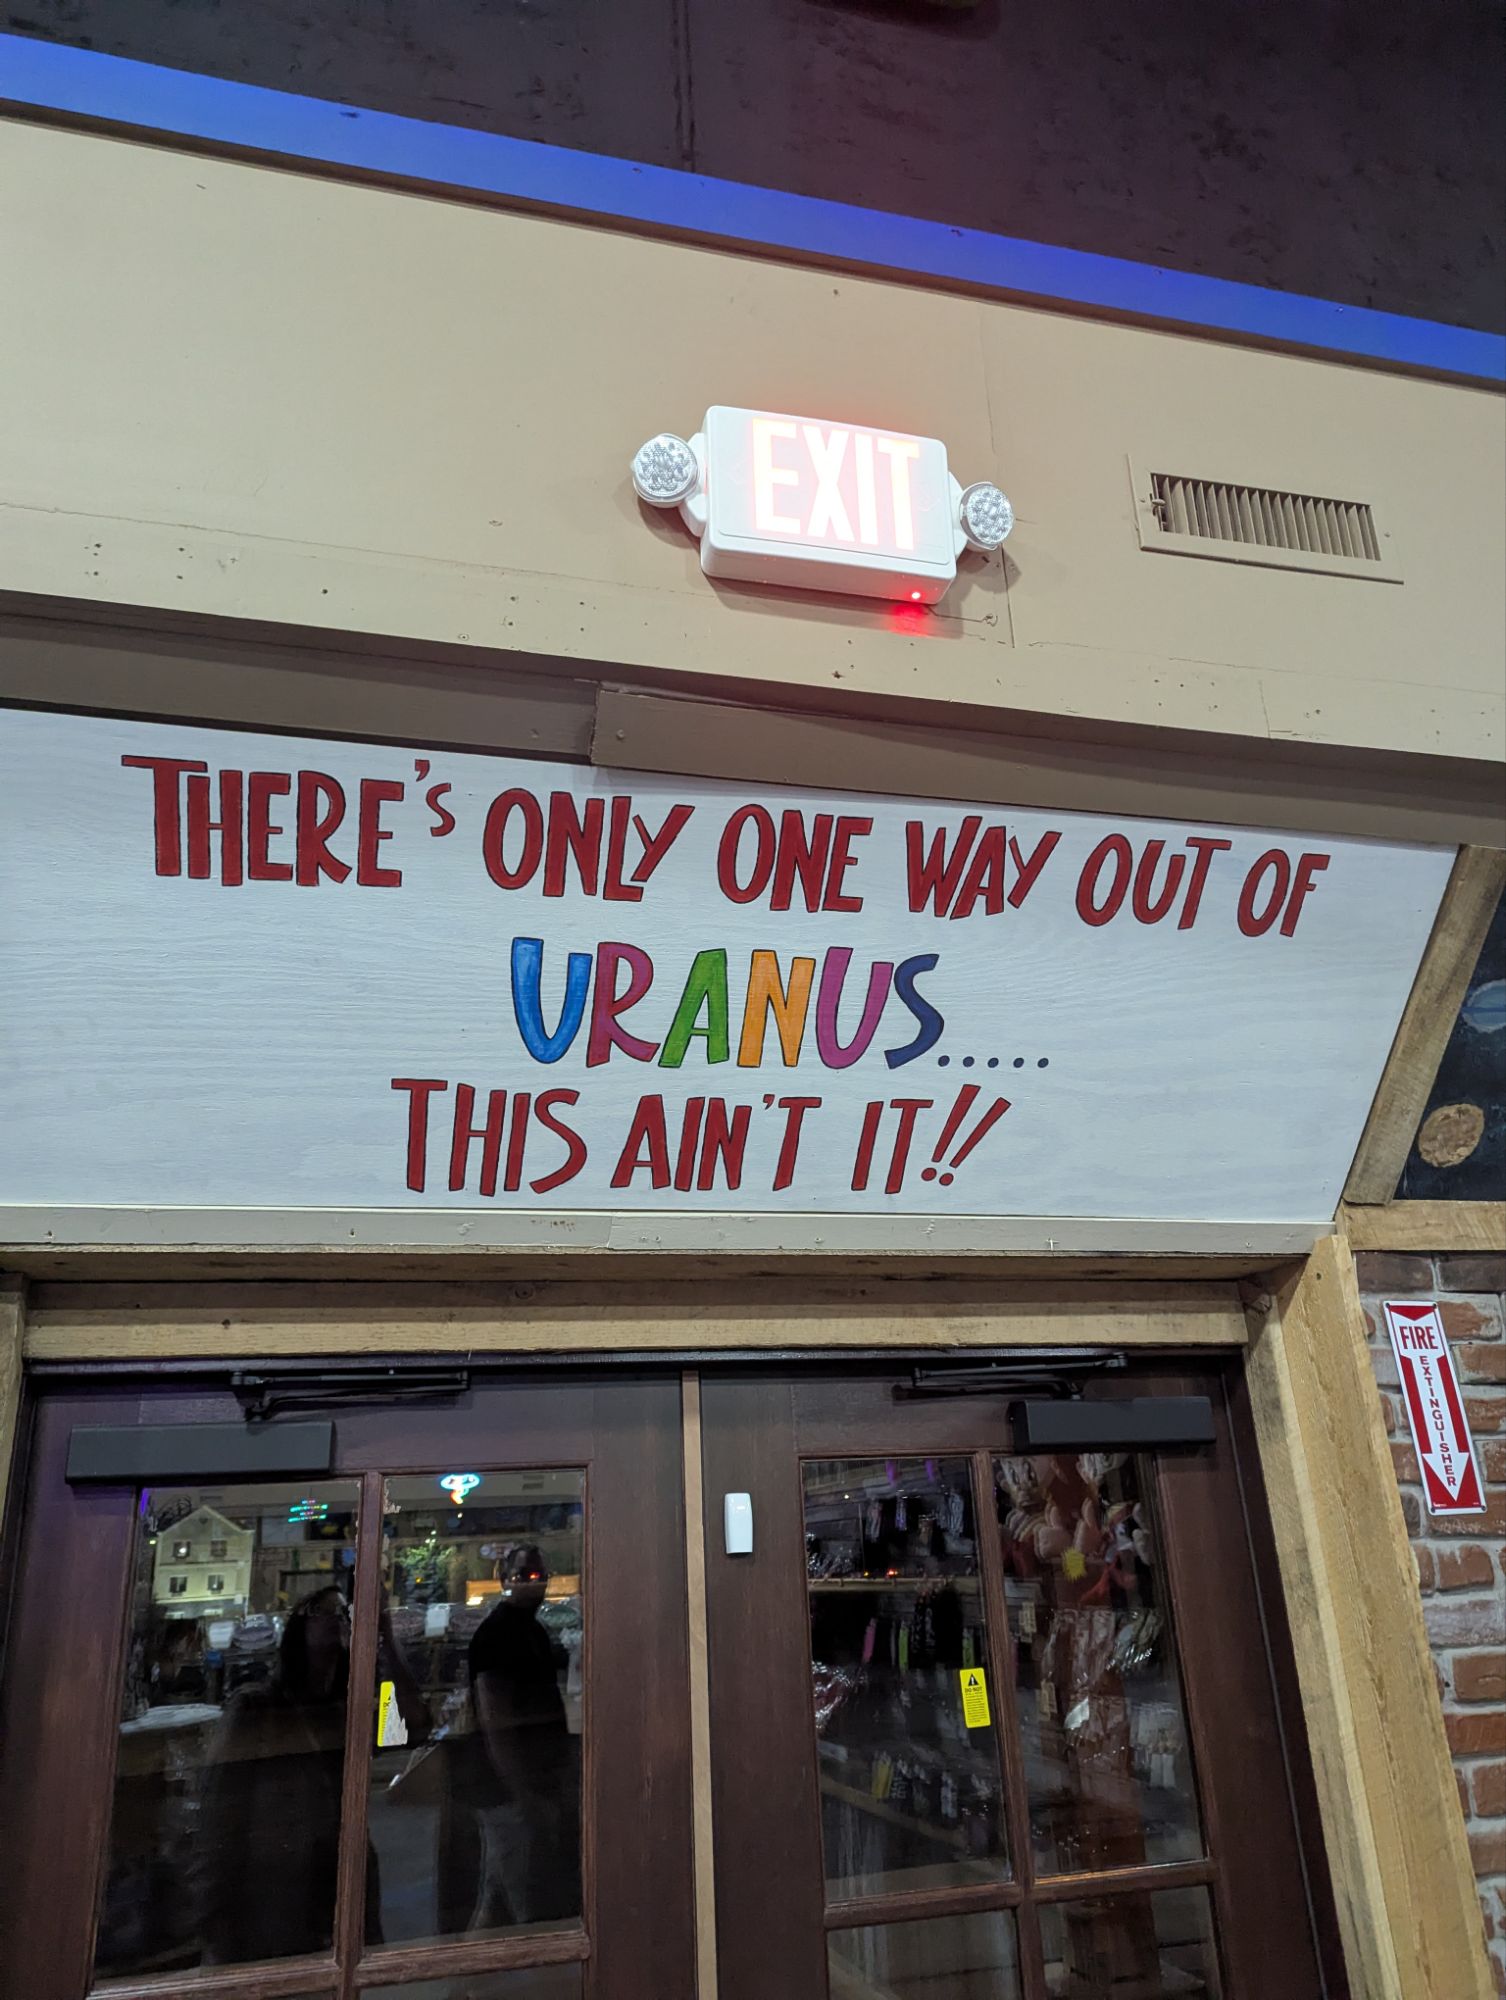 EXIT
THERE'S ONLY ONE WAY OUT OF
URANUS.....
THIS AIN'T IT!!
FIRE
EXTINGUISHER
DO NOT